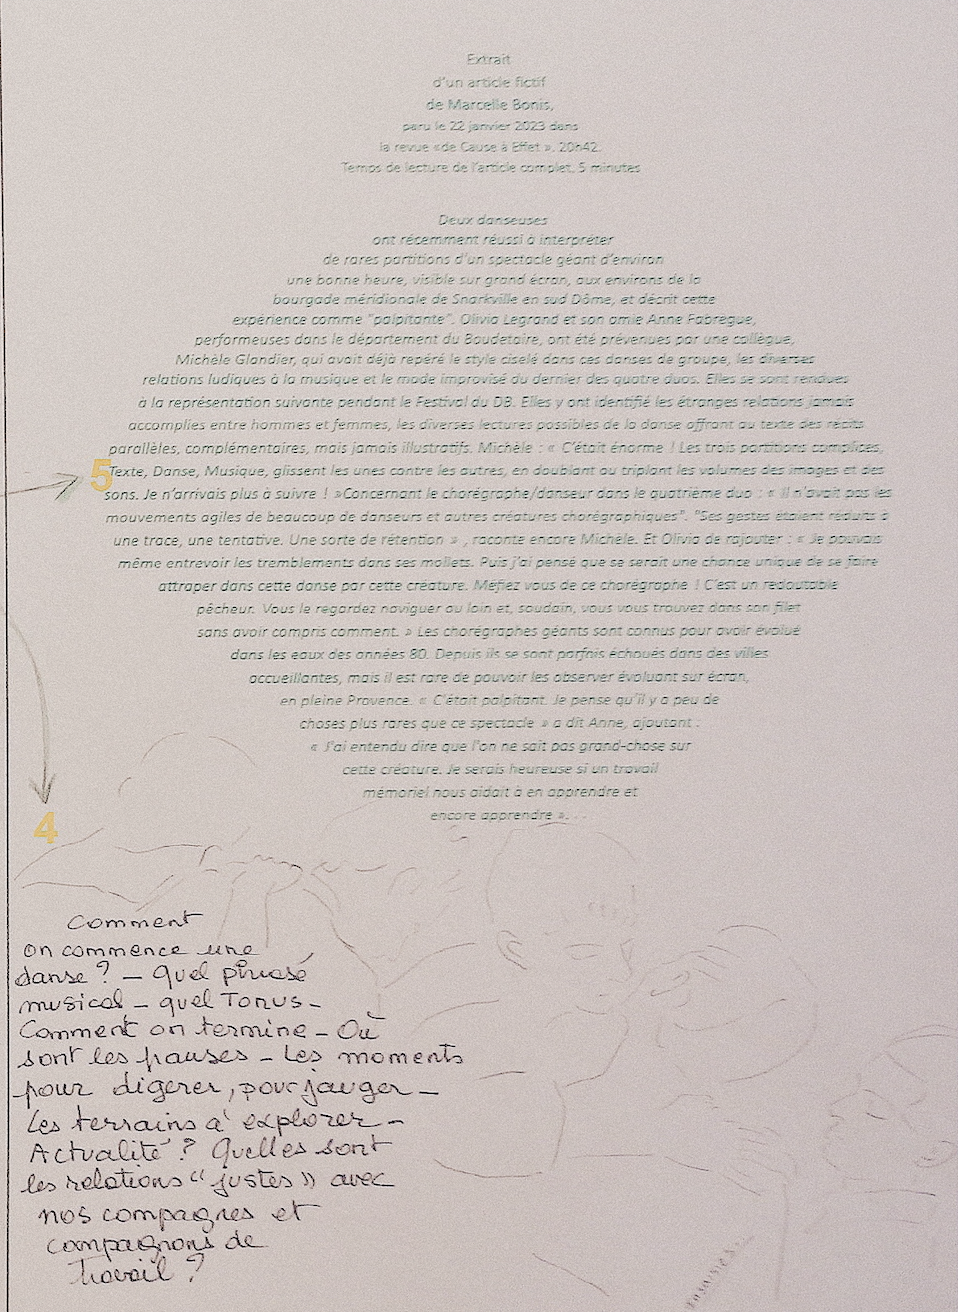 Extrait
d'un article fictif
de Marcelle Bonis,
paru le 22 janvier 2023 dans
la revue «de Cause à Effet ». 20h42.
Temps de lecture de l'article complet, 5 minutes
Deux danseuses
ont récemment réussi à interpréter
de rares partitions d'un spectacle géant d'environ
une bonne heure, visible sur grand écran, aux environs de la
bourgade méridionale de Snarkville en sud Dôme, et décrit cette
expérience comme "palpitante". Olivia Legrand et son amie Anne Fabrègue,
performeuses dans le département du Boudetoire, ont été prévenues par une collègue,
Michèle Glandier, qui avait déjà repéré le style ciselé dans ces danses de groupe, les diverses
relations ludiques à la musique et le mode improvisé du dernier des quatre duos. Elles se sont rendues
à la représentation suivante pendant le Festival du DB. Elles y ont identifié les étranges relations jamais
accomplies entre hommes et femmes, les diverses lectures possibles de la danse offrant au texte des récits
parallèles, complémentaires, mais jamais illustratifs. Michèle : « C'était énorme ! Les trois partitions complices,
5
Texte, Danse, Musique, glissent les unes contre les autres, en doublant ou triplant les volumes des images et des
sons. Je n'arrivais plus à suivre ! »Concernant le chorégraphe/danseur dans le quatrième duo : « Il n'avait pas les
mouvements agiles de beaucoup de danseurs et autres créatures chorégraphiques". "Ses gestes étaient réduits à
une trace, une tentative. Une sorte de rétention » , raconte encore Michèle. Et Olivia de rajouter : « Je pouvais
même entrevoir les tremblements dans ses mollets. Puis j'ai pensé que se serait une chance unique de se faire
attraper dans cette danse par cette créature. Méfiez vous de ce chorégraphe ! C'est un redoutable
pêcheur. Vous le regardez naviguer au loin et, soudain, vous vous trouvez dans son filet
sans avoir compris comment. » Les chorégraphes géants sont connus pour avoir évolué
dans les eaux des années 80. Depuis ils se sont parfois échoués dans des villes
accueillantes, mais il est rare de pouvoir les observer évoluant sur écran,
en pleine Provence. « C'était palpitant. Je pense qu'il y a peu de
choses plus rares que ce spectacle » a dit Anne, ajoutant :
« J'ai entendu dire que l'on ne sait pas grand-chose sur
cette créature. Je serais heureuse si un travail
mémoriel nous aidait à en apprendre et
encore apprendre ». . .
4
Comment
on commence une
danse ? – Quel phrasé
musical – quel Tonus –
Comment on termine – Où
sont les pauses – Les moments
pour digérer, pour jauger –
Les terrains à explorer –
Actualité ? Quelles sont
les relations "justes" avec
nos compagnes et
compagnons de
Travail ?